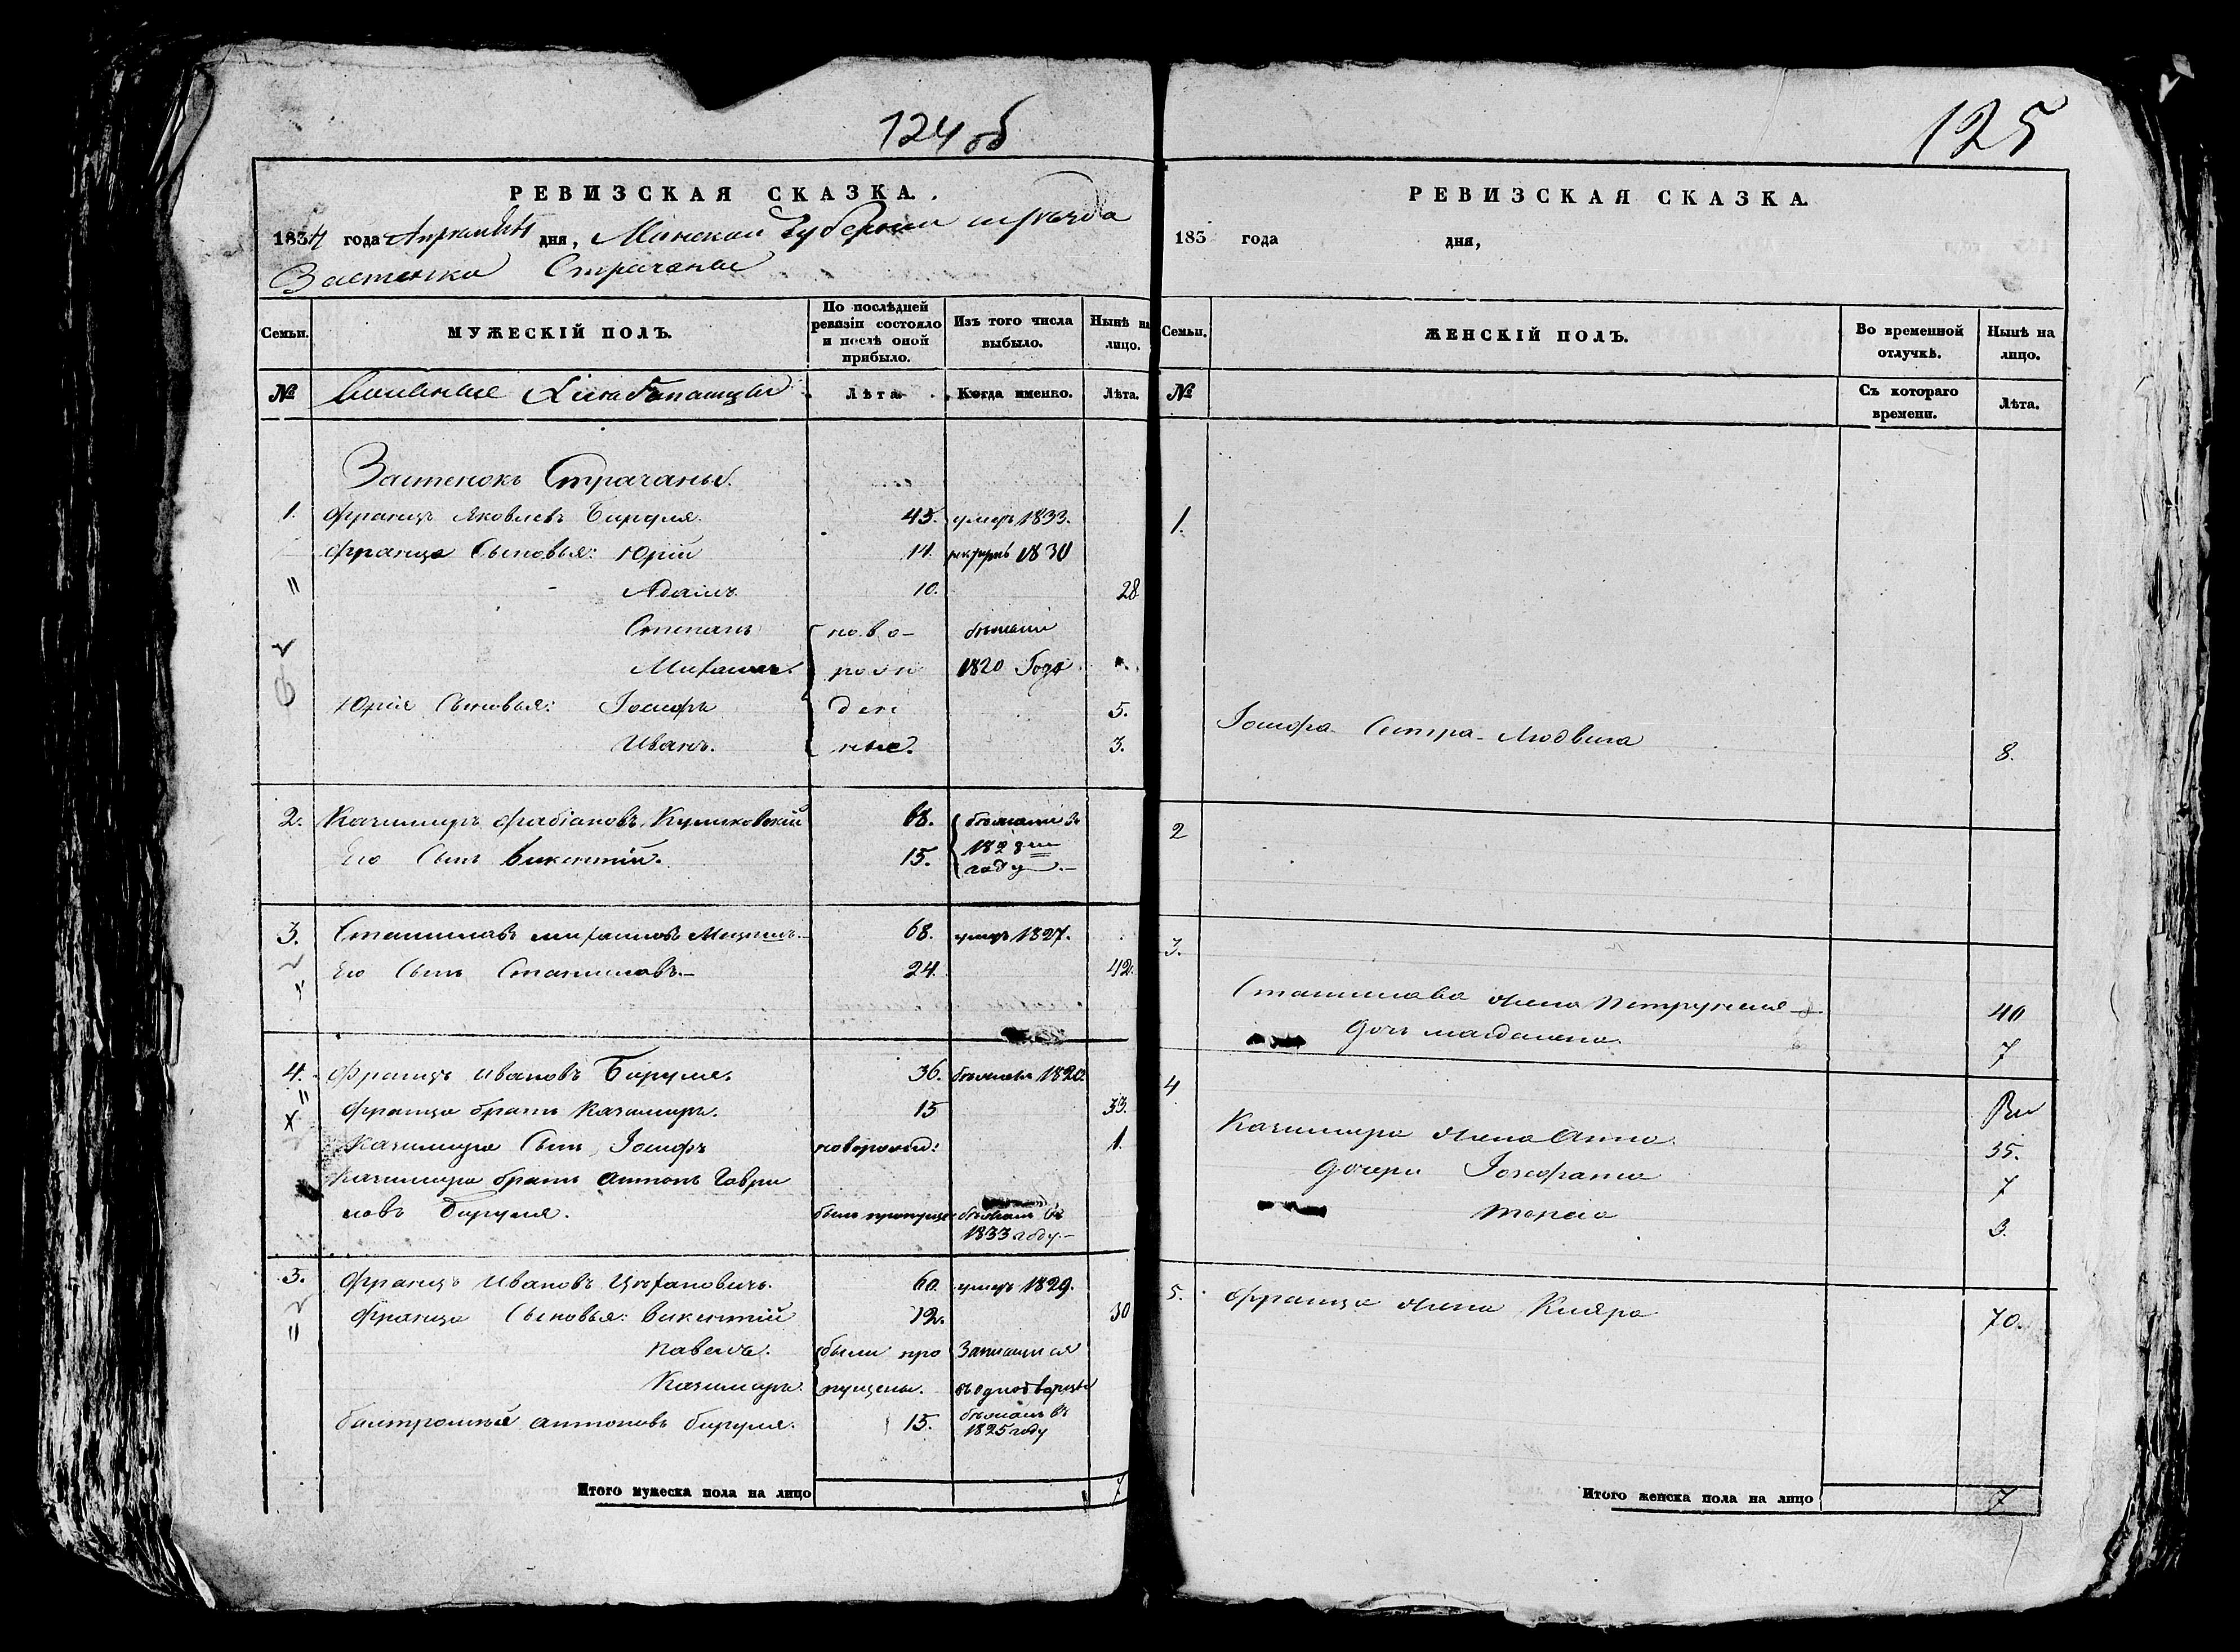 124 об
РЕВИЗСКАЯ СКАЗКА.
1834 года Апреля дня, Минской Губернии и уезда
Застенка Страчанье
Семьи.
МУЖЕСКІЙ ПОЛЪ.
По послѣдней ревизіи состояло и послѣ оной прибыло.
Изъ того числа выбыло.
Нынѣ на лицо.
№
Вольные
Лѣта.
Когда именно.
Лѣта.
Застенокъ Страчанье.
1. Францъ Яковлевъ Бируля. 45. умеръ 1833.
Франца Сыновья: Юрій 14. 1830
" Адамъ 10. 28
Степанъ ново- бежали
Михаилъ. рож 1820 Года
Юрія Сыновья: Іосифъ ден 5.
Иванъ. ные. 3.
2. Казимиръ Фабіановъ Куликовскій 68. бежали въ
Его Сынъ Викентій. 15. году.
3. Станиславъ Михаиловъ 68. умеръ 1827.
Его Сынъ Станиславъ. 24. 42.
4. Францъ Ивановъ Бируля. 36. 1820.
" Франца братъ Казимиръ. 15 33.
х Казимира Сынъ Іосифъ новорожд: 1.
Казимира братъ Антонъ Гаври
ловъ Бируля. былъ пропущ бежалъ въ
1833 году.
5. Францъ Ивановъ Цыхановичъ. 60. умеръ 1829.
" Франца Сыновья: Викентій 12. 30
Павелъ. были про Записался
Казимиръ. пущены. въ однодворцы
Балтромей Антоновъ Бируля. 15. бежалъ въ
1825 году
Итого мужеска пола на лицо 7
125
РЕВИЗСКАЯ СКАЗКА.
183 года дня,
Семьи.
ЖЕНСКІЙ ПОЛЪ.
Во временной отлучкѣ.
Нынѣ на лицо.
№
Съ котораго времени.
Лѣта.
1.
Іосифа Сестра Людвига 8.
2
3.
Станислава жена Петрунеля 40
дочь Магдалена 7
4
Казимира жена Анна 35.
дочери Іозефата 7
Марія 3.
5. Франца жена Кляра 70.
Итого женска пола на лицо 7